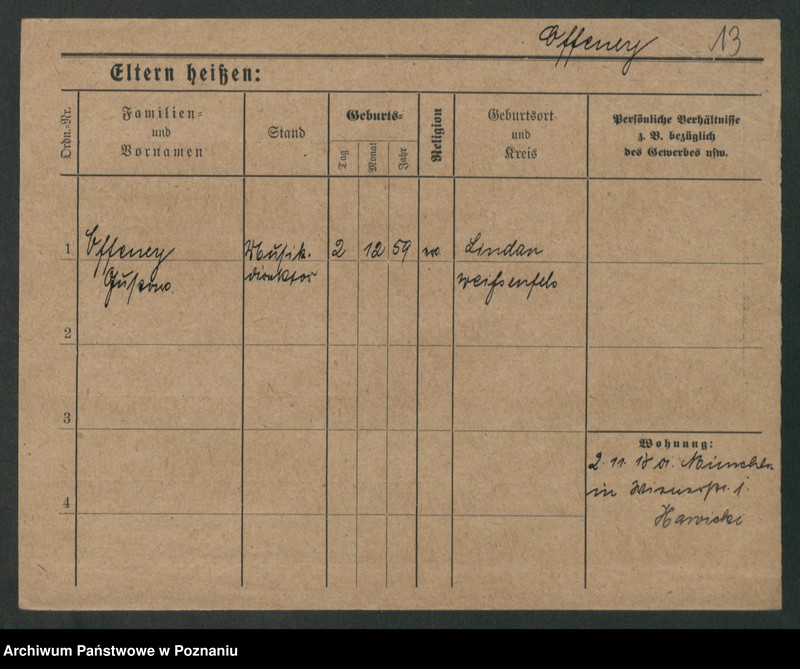 Offeney 13
Eltern heißen:
Ordn.-Nr.
Familien=
und
Vornamen
Stand
Geburts=
Tag
Monat
Jahr
Religion
Geburtsort
und
Kreis
Persönliche Verhältnisse
z. B. bezüglich
des Gewerbes usw.
1 Offeney Musik- 2 12 59 Lindau
Gustav direktor Weißenfels
2
3
4
Wohnung:
2. 11. 18 München
in 1.
Hawicki
Archiwum Państwowe w Poznaniu